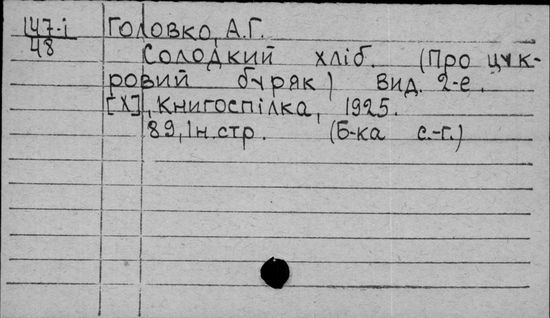 147-i Головко, А.Г.
48 Солодкий хліб. (Про цук-
ровий буряк) Вид. 2-е.
[Х], Книгоспілка, 1925.
89, 1 н.стр. (Б-ка с.-г.)